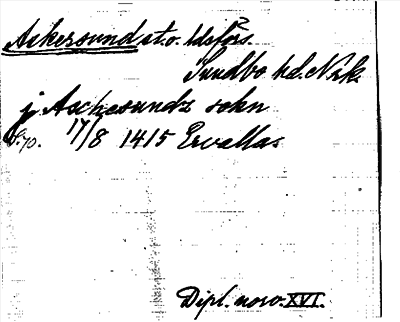 Askersund st. o. ldsförs.
Sundbo hd. Nrk.
j Aschesundz sokn
S. 70. 17/8 1415 Ervallas
Dipl. nov. XVI.